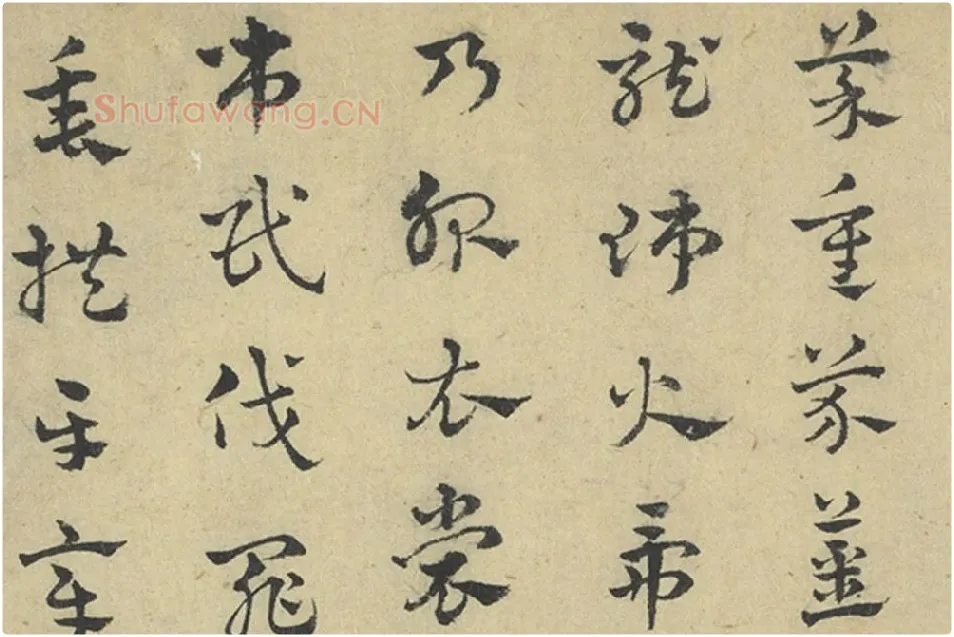 菜重芥薑
龍師火帝
乃服衣裳
吊民伐罪
垂拱平章
Shufawang.CN